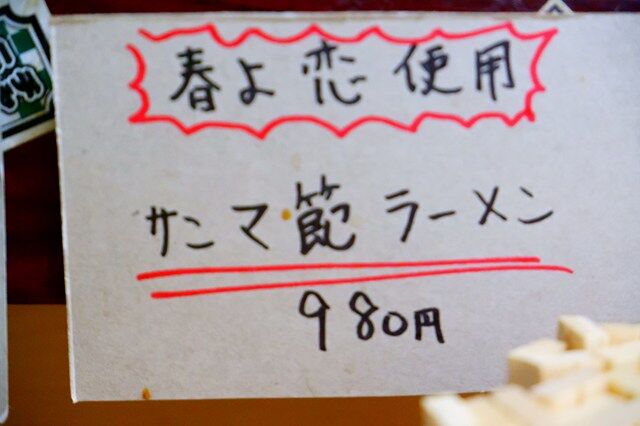 春よ恋 使用
サンマ節ラーメン
980円